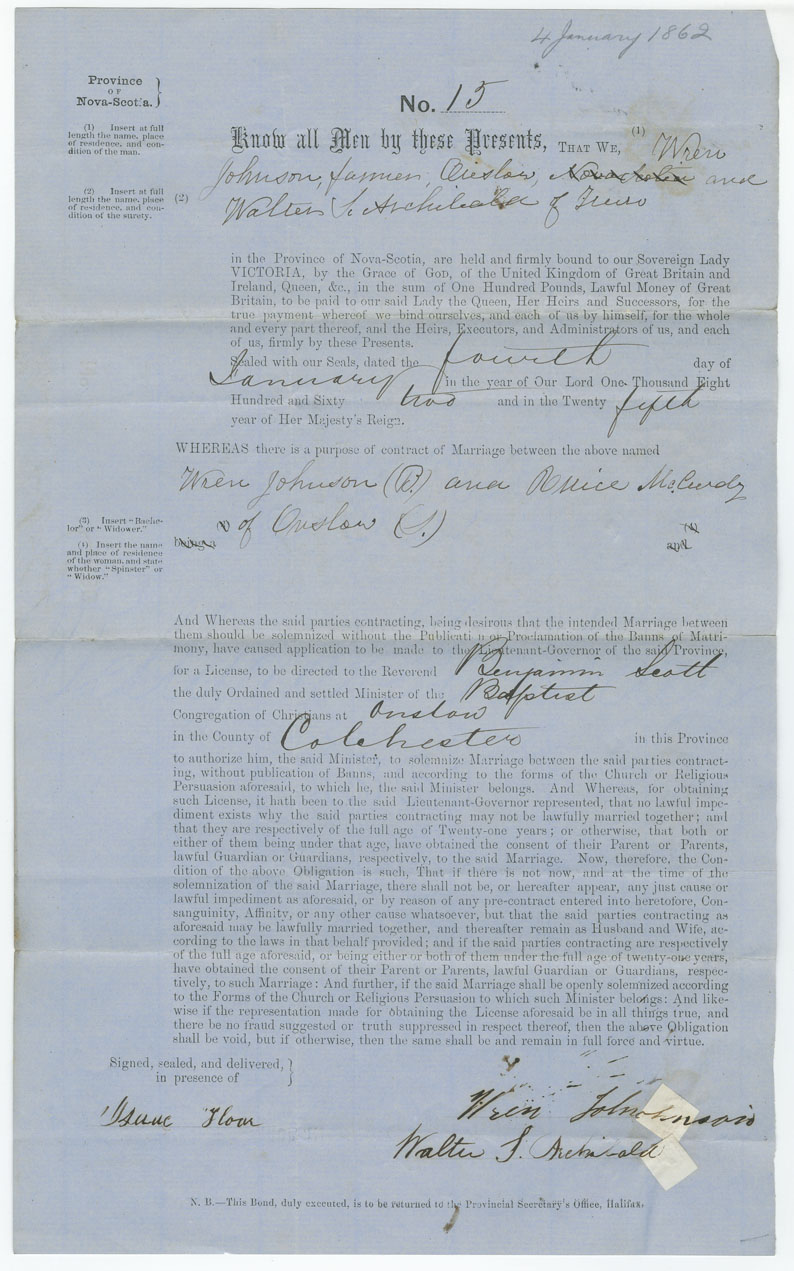 4 January 1862
Province
OF
Nova-Scotia.
No. 15
(1) Insert at full
length the name, place
of residence, and con-
dition of the man.
Know all Men by these Presents, THAT WE, (1) Wren
Johnson, farmer, Onslow, Nova Scotia and
(2) Insert at full
length the name, place
of residence, and con-
dition of the surety.
(2) Walter S. Archibald of Truro
in the Province of Nova-Scotia, are held and firmly bound to our Sovereign Lady
VICTORIA, by the Grace of GOD, of the United Kingdom of Great Britain and
Ireland, Queen, &c., in the sum of One Hundred Pounds, Lawful Money of Great
Britain, to be paid to our said Lady the Queen, Her Heirs and Successors, for the
true payment whereof we bind ourselves, and each of us by himself, for the whole
and every part thereof, and the Heirs, Executors, and Administrators of us, and each
of us, firmly by these Presents.
Sealed with our Seals, dated the fourth day of
January in the year of Our Lord One Thousand Eight
Hundred and Sixty two and in the Twenty fifth
year of Her Majesty's Reign.
WHEREAS there is a purpose of contract of Marriage between the above named
Wren Johnson (B.) and McCurdy
(3) Insert "Bache-
lor" or "Widower."
(4) Insert the name
and place of residence
of the woman, and state
whether "Spinster" or
"Widow."
being a of Onslow (S.) (4)
and
And Whereas the said parties contracting, being desirous that the intended Marriage between
them should be solemnized without the Publicati n or Proclamation of the Banns of Matri-
mony, have caused application to be made to the Lieutenant-Governor of the said Province,
for a License, to be directed to the Reverend Benjamin Scott
the duly Ordained and settled Minister of the Baptist
Congregation of Christians at Onslow
in the County of Colchester in this Province
to authorize him, the said Minister, to solemnize Marriage between the said parties contract-
ing, without publication of Banns, and according to the forms of the Church or Religious
Persuasion aforesaid, to which he, the said Minister belongs. And Whereas, for obtaining
such License, it hath been to the said Lieutenant-Governor represented, that no lawful impe-
diment exists why the said parties contracting may not be lawfully married together; and
that they are respectively of the full age of Twenty-one years; or otherwise, that both or
either of them being under that age, have obtained the consent of their Parent or Parents,
lawful Guardian or Guardians, respectively, to the said Marriage. Now, therefore, the Con-
dition of the above Obligation is such, That if there is not now, and at the time of the
solemnization of the said Marriage, there shall not be, or hereafter appear, any just cause or
lawful impediment as aforesaid, or by reason of any pre-contract entered into heretofore, Con-
sanguinity, Affinity, or any other cause whatsoever, but that the said parties contracting as
aforesaid may be lawfully married together, and thereafter remain as Husband and Wife, ac-
cording to the laws in that behalf provided; and if the said parties contracting are respectively
of the full age aforesaid, or being either or both of them under the full age of twenty-one years,
have obtained the consent of their Parent or Parents, lawful Guardian or Guardians, respec-
tively, to such Marriage: And further, if the said Marriage shall be openly solemnized according
to the Forms of the Church or Religious Persuasion to which such Minister belongs: And like-
wise if the representation made for obtaining the License aforesaid be in all things true, and
there be no fraud suggested or truth suppressed in respect thereof, then the above Obligation
shall be void, but if otherwise, then the same shall be and remain in full force and virtue.
Signed, sealed, and delivered,
in presence of
Isaac Wren Johnson
Walter S. Archibald
N. B.—This Bond, duly executed, is to be returned to the Provincial Secretary's Office, Halifax.